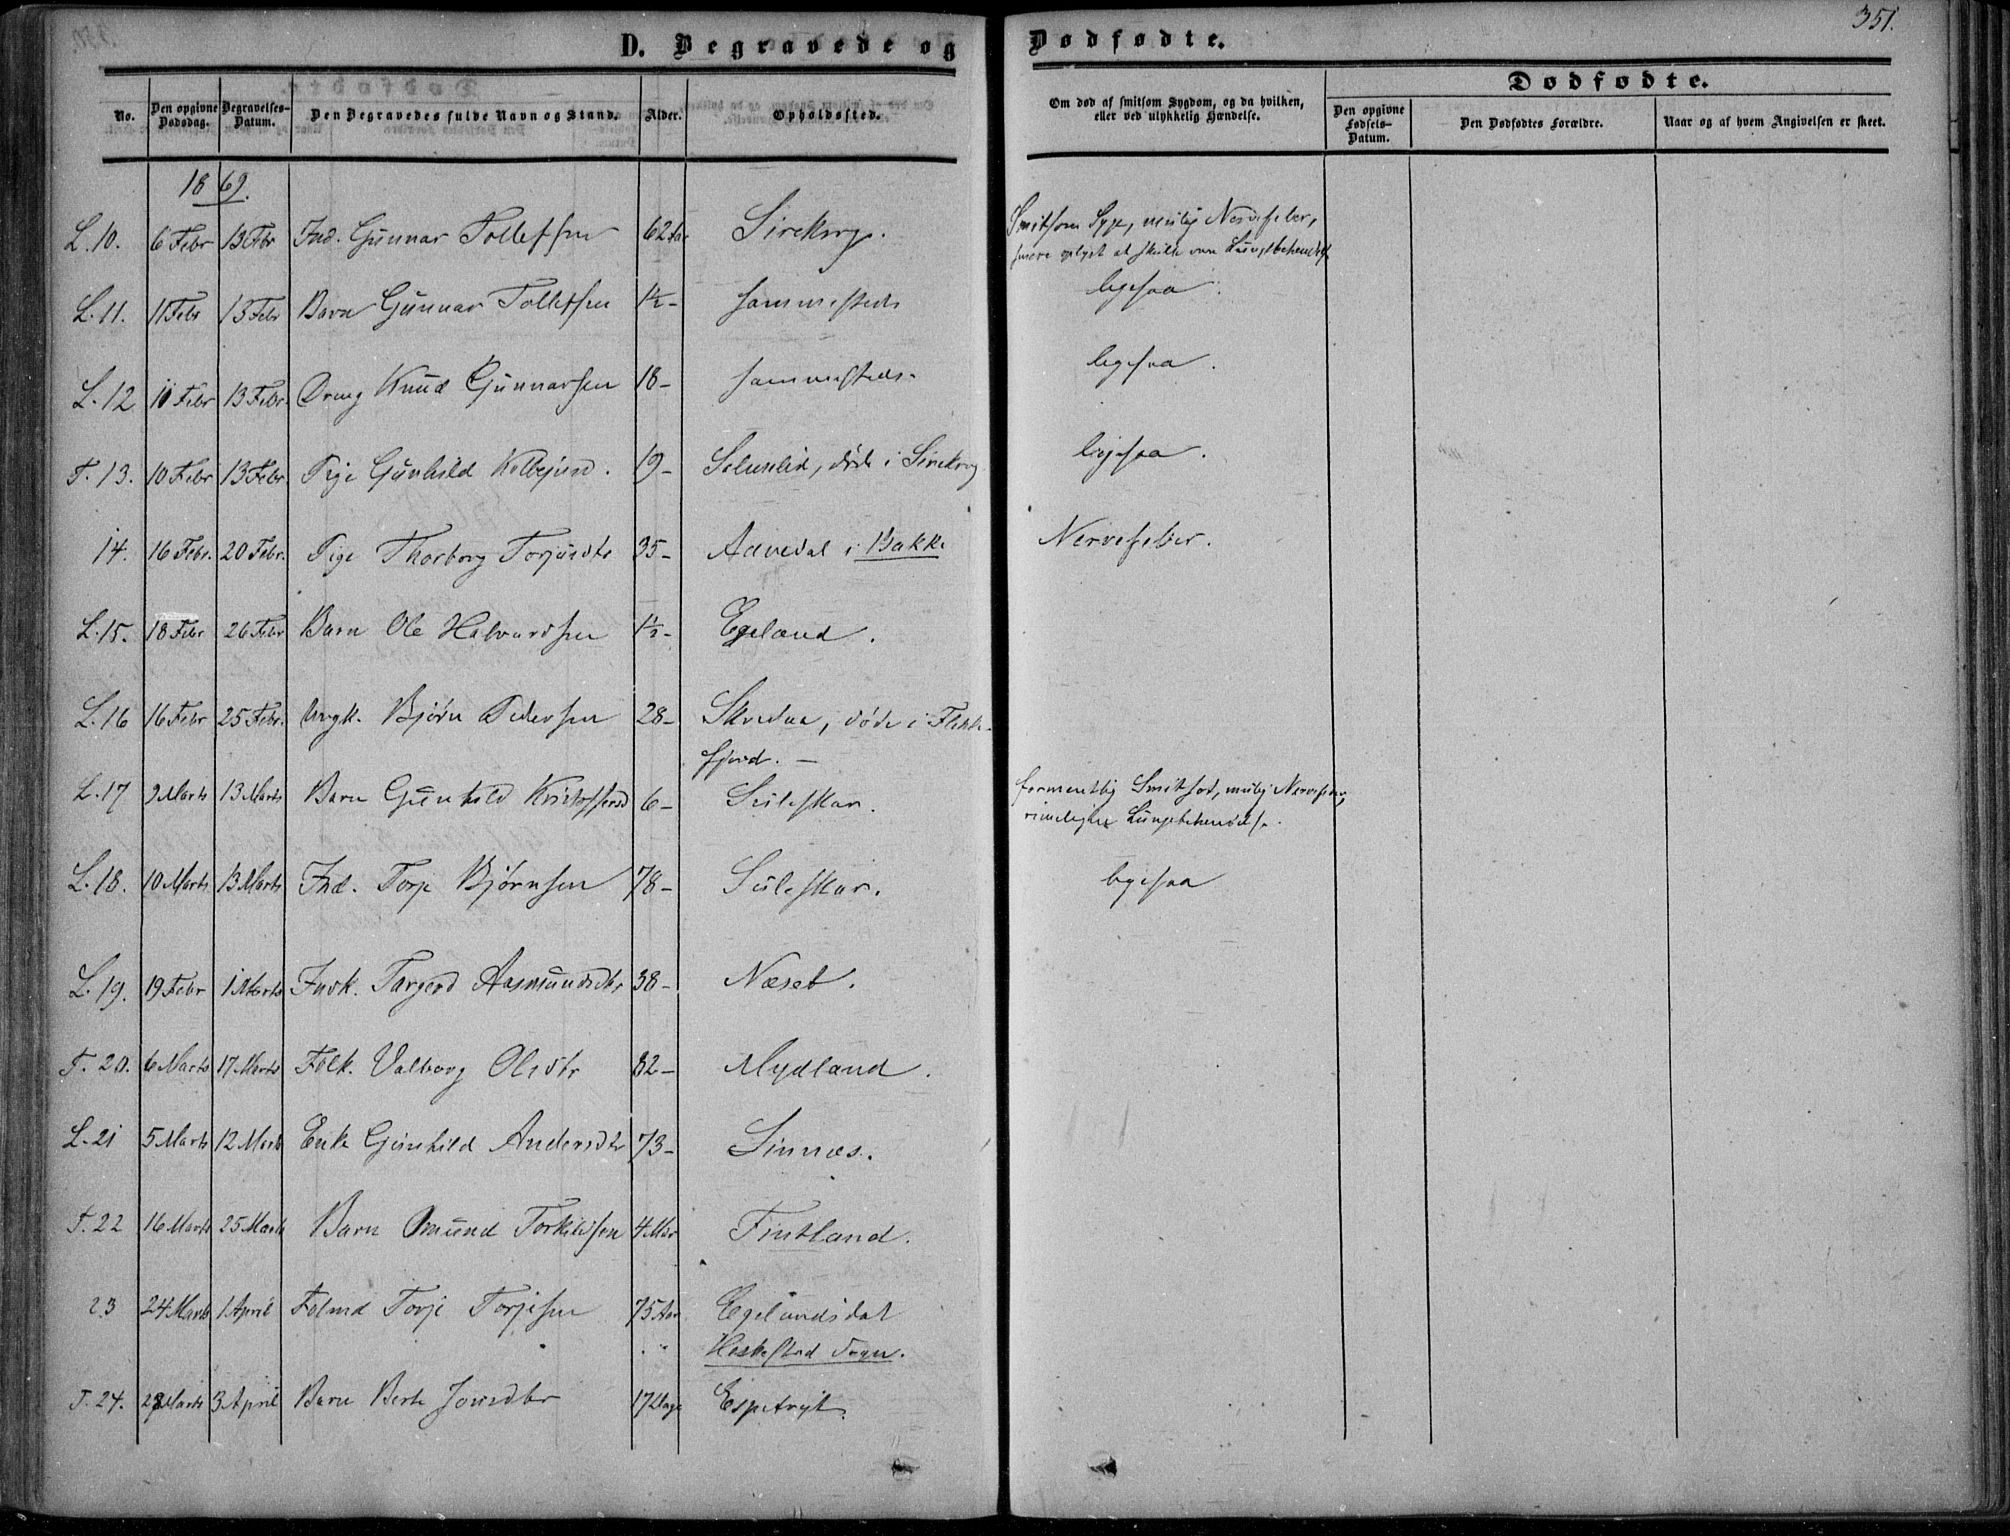 351.
D. Begravede og Dødfødte.
No. Den opgivne Dødsdag. Begravelses-Datum. Den Begravedes fulde Navn og Stand. Alder. Opholdssted. Om død af smitsom Sygdom, og da hvilken, eller ved ulykkelig Hændelse. Dødfødte.
Den opgivne Fødsels-Datum. Den Dødfødtes Forældre. Naar og af hvem Angivelsen er skeet.
1869.
L. 10. 6 Febr 13 Febr Ind. Gunnar Tollefsen 62 Aar Sirekrog. Smitsom Syge, mulig Nervefeber,
senere oplyst at skulle være
L. 11. 11 Febr 13 Febr Barn Gunnar Tollefsen 1½ - sammesteds ligesaa.
L. 12 11 Febr 13 Febr. Dreng Knud Gunnarsen 18 - sammesteds. ligesaa.
F. 13. 10 Febr 13 Febr. Pige Gunhild 19 - døde i Sirekrog ligesaa.
14. 16 Febr. 20 Febr. Pige Thorborg Torjusdtr 35 - i Bakke Nervefeber.
L. 15. 18 Febr 26 Febr Barn Ole Halvardsen 1½ - Egeland.
L. 16 16 Febr 25 Febr. Ungk. Bjørn Pedersen 28 - Skredaa, døde i Flekke-
fjord. -
L. 17 9 Marts 13 Marts Barn Gunhild Kristoffersd 6 - Suleskar. formentlig Smitsot, mulig Nervefeber,
rimeligere Lungebetændelse.
L. 18. 10 Marts 13 Marts Ind. Torje Bjørnsen 78 - Suleskar. ligesaa
L. 19. 19 Febr 1 Marts Indk. Targerd Aasmundsdtr 38 - Næset.
F. 20. 6 Marts 17 Marts Folk. Valborg Olsdtr 82 - Mydland.
L. 21 5 Marts 12 Marts Enke Gunhild Andersdtr 73 - Sinnes.
F. 22 16 Marts 25 Marts Barn Omund Torkildsen 4 Mdr Fintland.
23 24 Marts 1 April Folmd Torje Torjesen 75 Aar Egelandsdal
Heskestad Sogn.
F. 24. 28 Marts 3 April Barn Berte Jonsdtr 17 Dage Espetvejt.